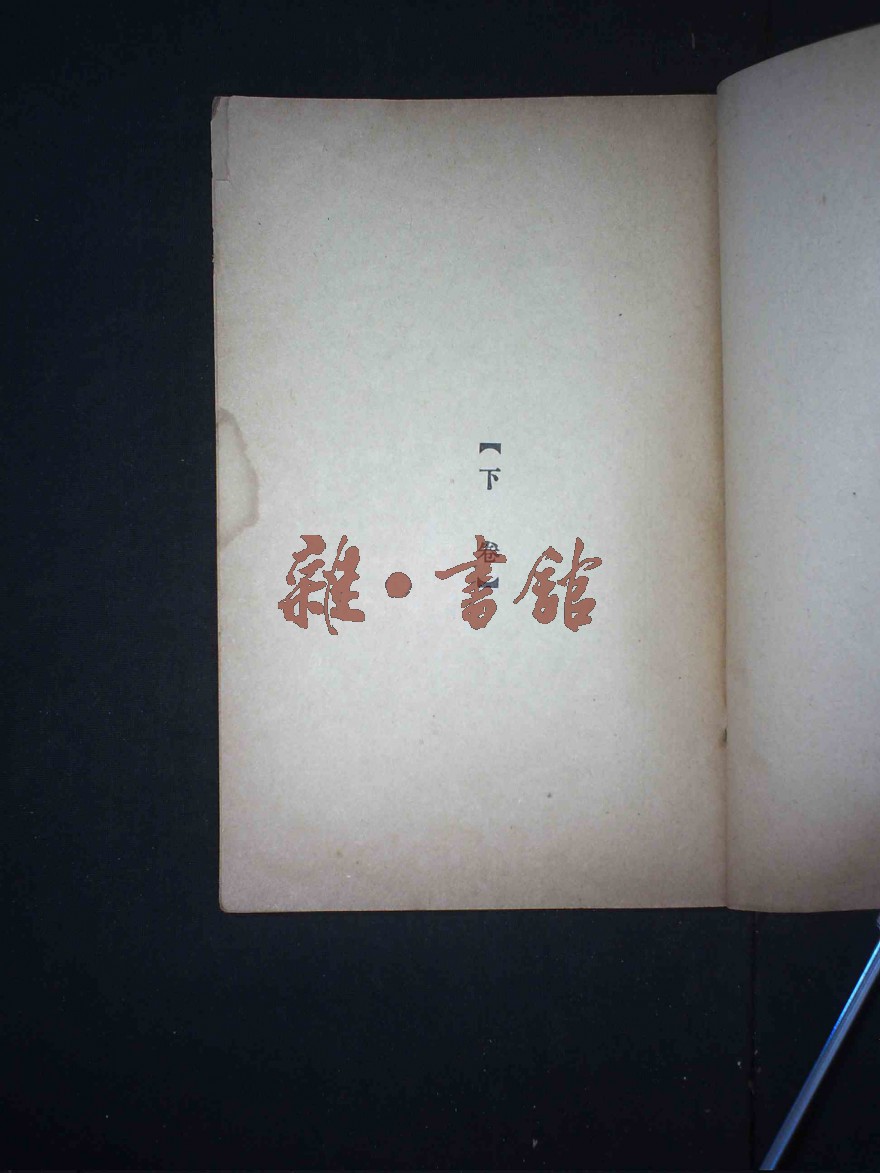 【下卷】
雜·書館